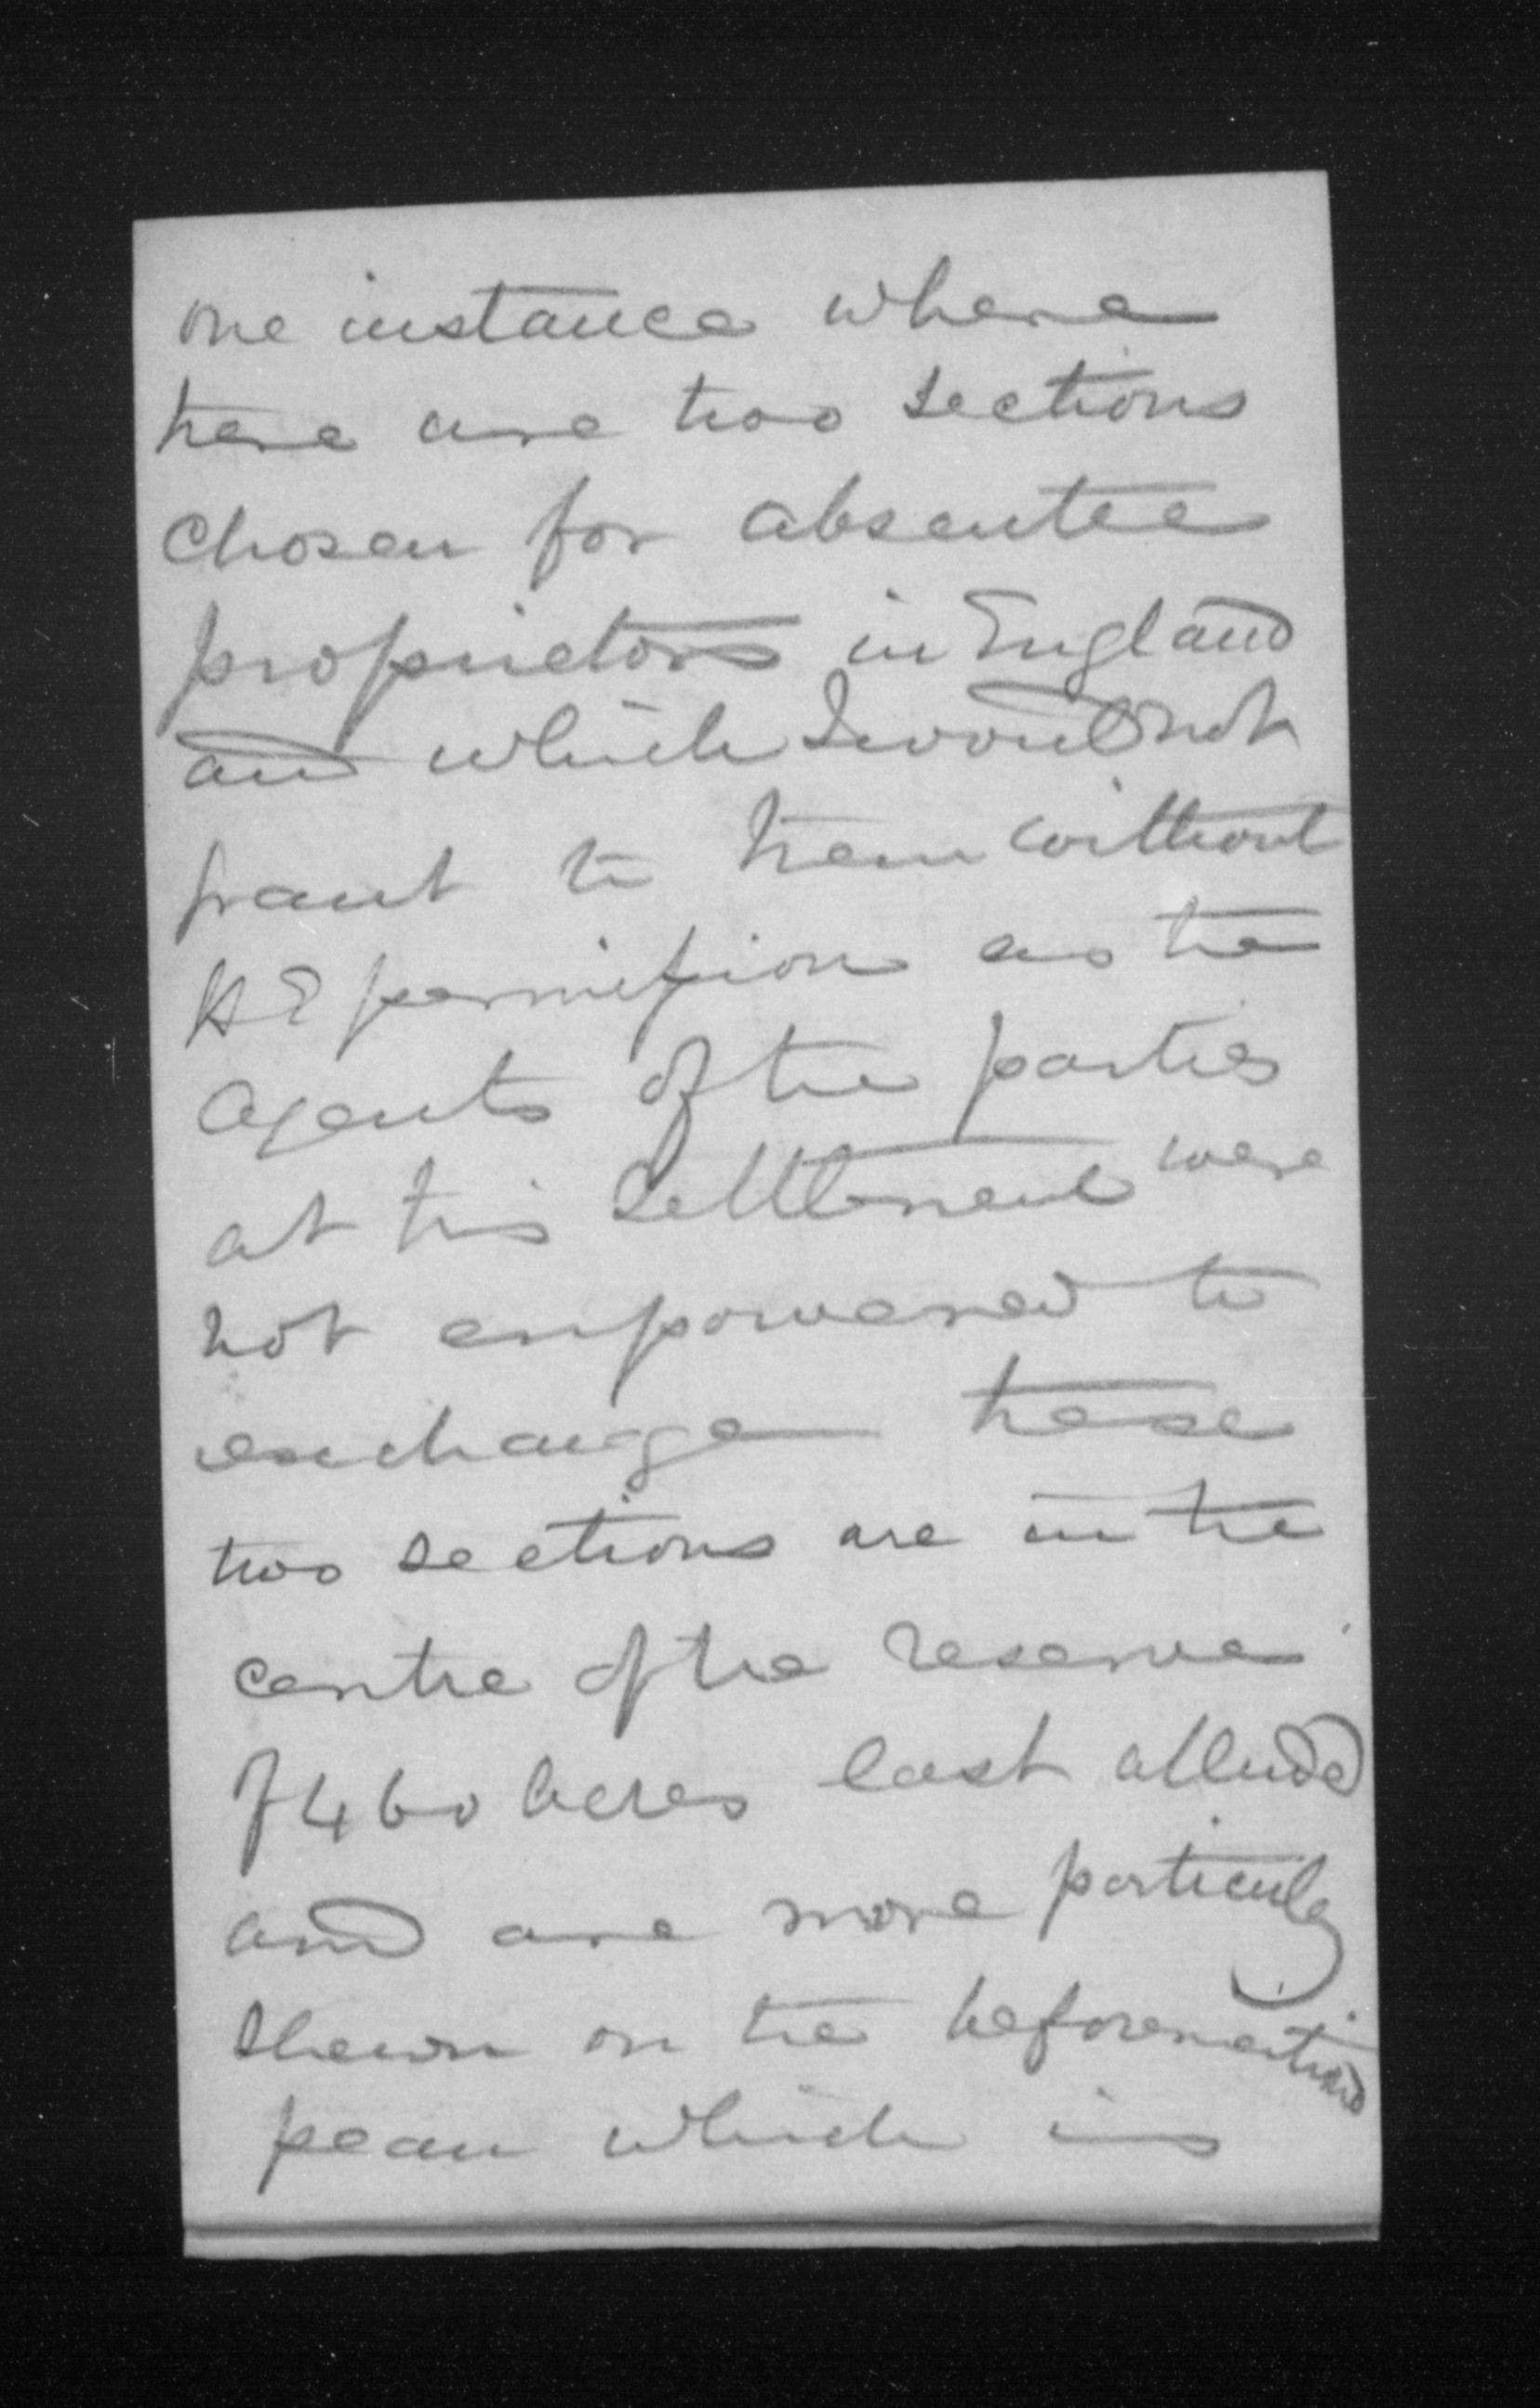 one instance where
there are two sections
chosen for absentee
proprietors in England
and which I would not
grant to them without
HE permission as the
Agents of the parties
at this Settlement were
not empowered to
exchange these
two sections are in the
centre of the reserve
of 460 acres last alluded
and are more particularly
shewn on the beforementioned
plan which is